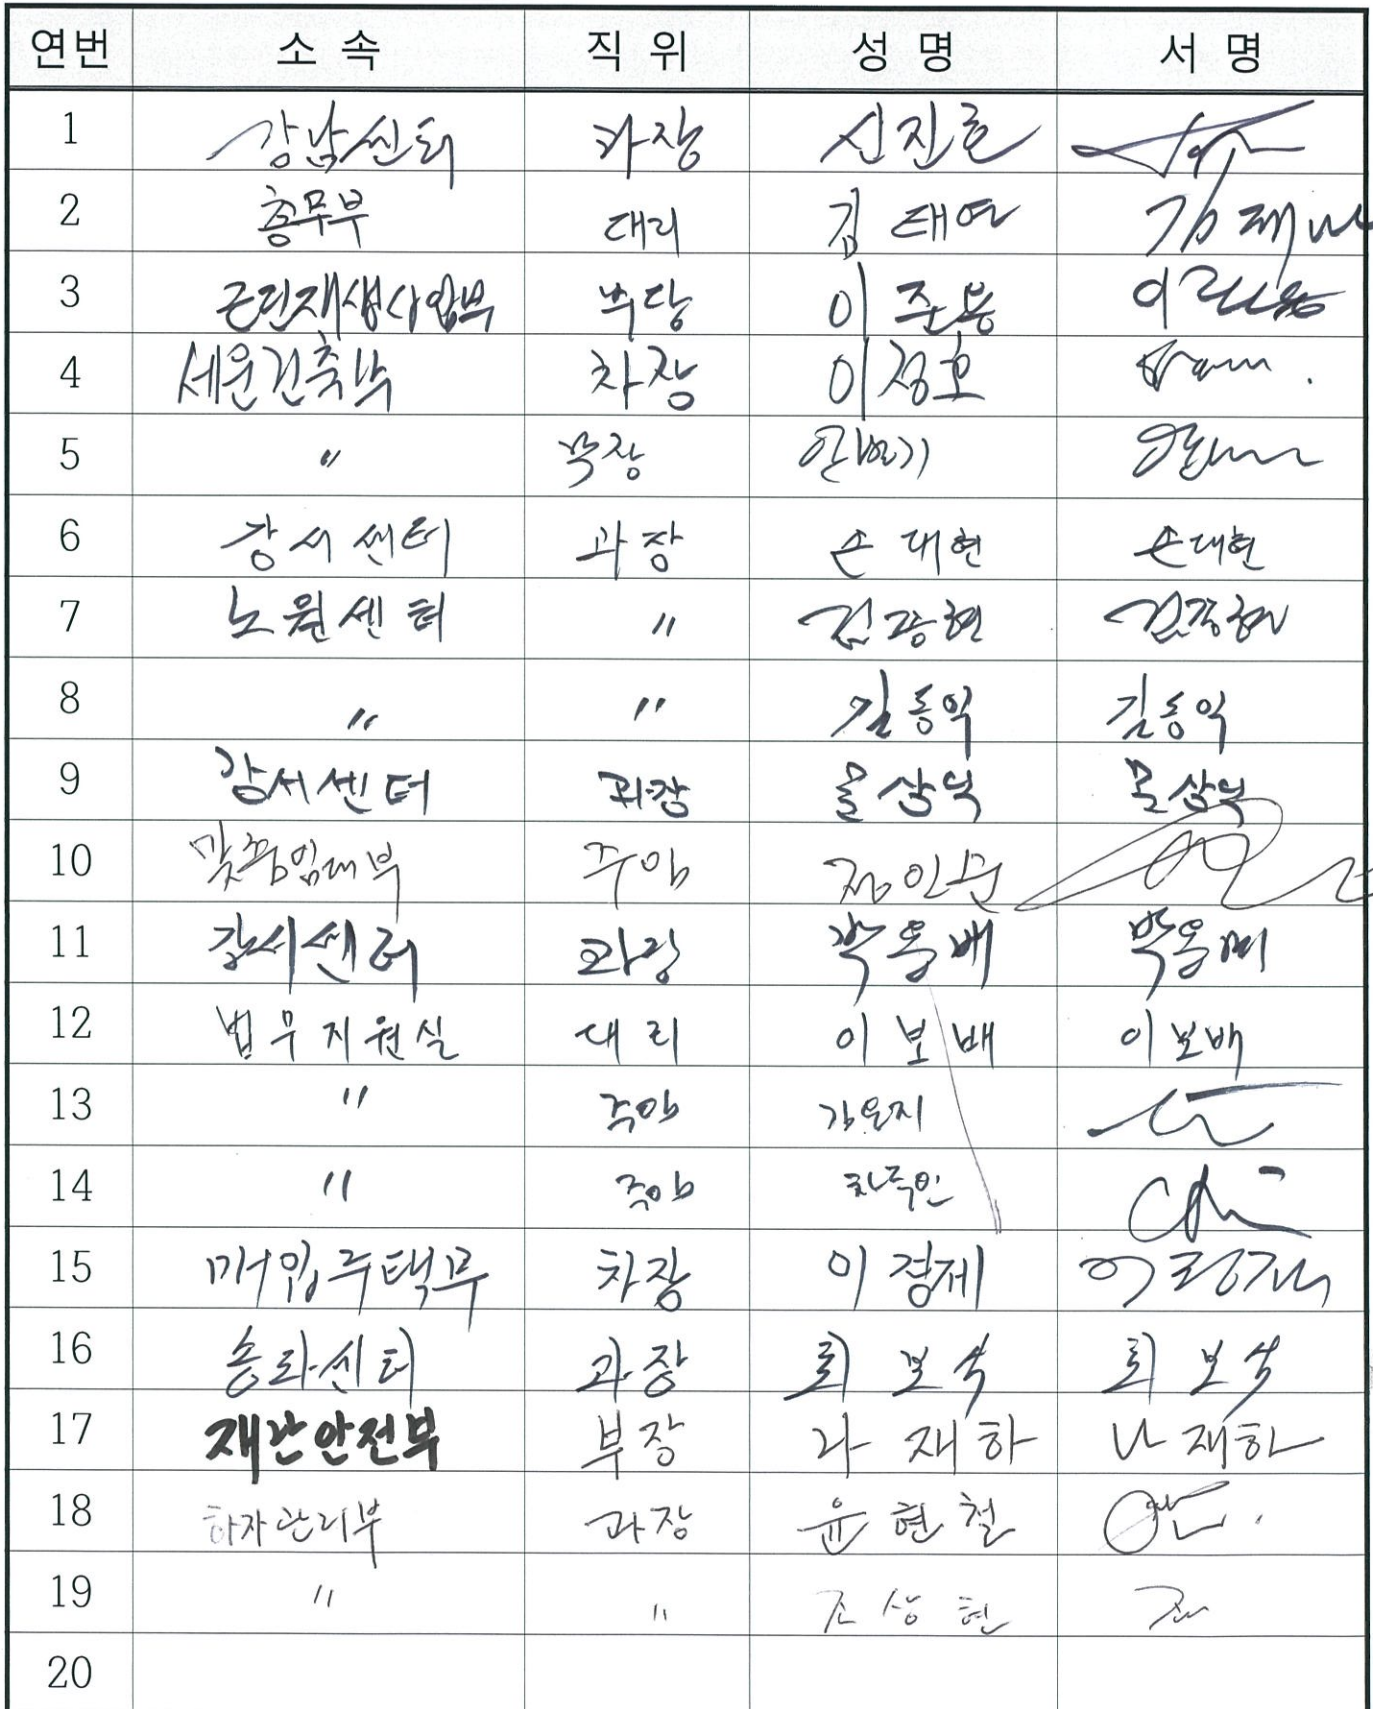 연번 소속 직위 성명 서명
1 강남센터 차장 신진호
2 총무부 대리 김태연
3 이준용
4 세운건축부 차장 이정호
5 〃 부장
6 강서센터 과장 손대현 손대현
7 노원센터 〃 김광현 김광현
8 〃 〃 김동익 김동익
9 강서센터 과장
10 맞춤임대부 주임 정인순
11 강서센터 과장 박웅배 박웅배
12 법무지원실 대리 이보배 이보배
13 〃 주임 김윤지
14 〃 주임 차주인
15 매입주택부 차장 이경제 이경제
16 송파센터 과장 최보석 최보석
17 재난안전부 부장 나재하 나재하
18 하자관리부 과장 윤현철
19 〃 〃 조상현
20